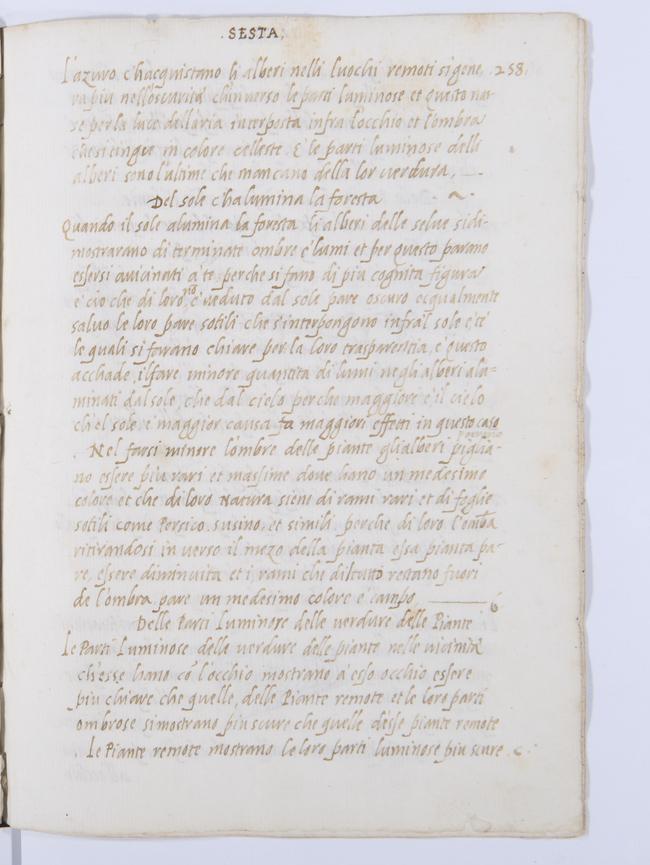 . SESTA.
L'azuro c'hacquistano li alberi nelli luochi remoti si gene, 258.
ra piu nell'oscurita ch'inverso le parti luminose et questo nas-
se per la luce dell'aria interposta infra l'occhio et l'ombra
che si tinge in colore celleste. E le parti luminose delli
alberi sono l'ultime che mancano della lor verdura.
Del sole c'halumina la foresta
Quando il sole alumina la foresta li alberi delle selve sidi-
mostrarano di terminate ombre e lumi et per questo parano
essersi avicinati à te perche si fano di piu cognita figura
e cio che di loro nō è veduto dal sole pare oscuro equalmente
salvo le loro pare sotili che s'interpongono infra'l sole e te
le quali si farano chiare per la loro trasparentia, e questo
acchade il fare minore quantita di lumi negl'alberi alu-
minati dal sole, che dal cielo perche maggiore è il cielo
ch'el sole, e maggior causa fa maggiori effetti in questo caso
. Nel farsi minore l'ombre delle piante gli alberi piglia-
no essere piu rari et massime dove hano un medesimo
colore et che di loro Natura siene di rami rari et di foglie
sotili come Persico. susino, et simili, perche di loro l'omb̄a
ritirandosi in verso il mezo della pianta essa pianta pa-
re, essere diminuita et i rami che diltutto restano fuori
de l'ombra, pare un medesimo colore e campo 6
Delle Parti Luminose delle verdure delle Piante
Le Parti Luminose delle verdure delle piante nelle vicinità
ch'esse hano cō l'occhio mostrano à esso occhio essere
piu chiare che quelle, delle Piante remote et le loro parti
ombrose si mostrano piu scure che quelle desse piante remote
. Le Piante remote mostrano le loro parti luminose piu scure